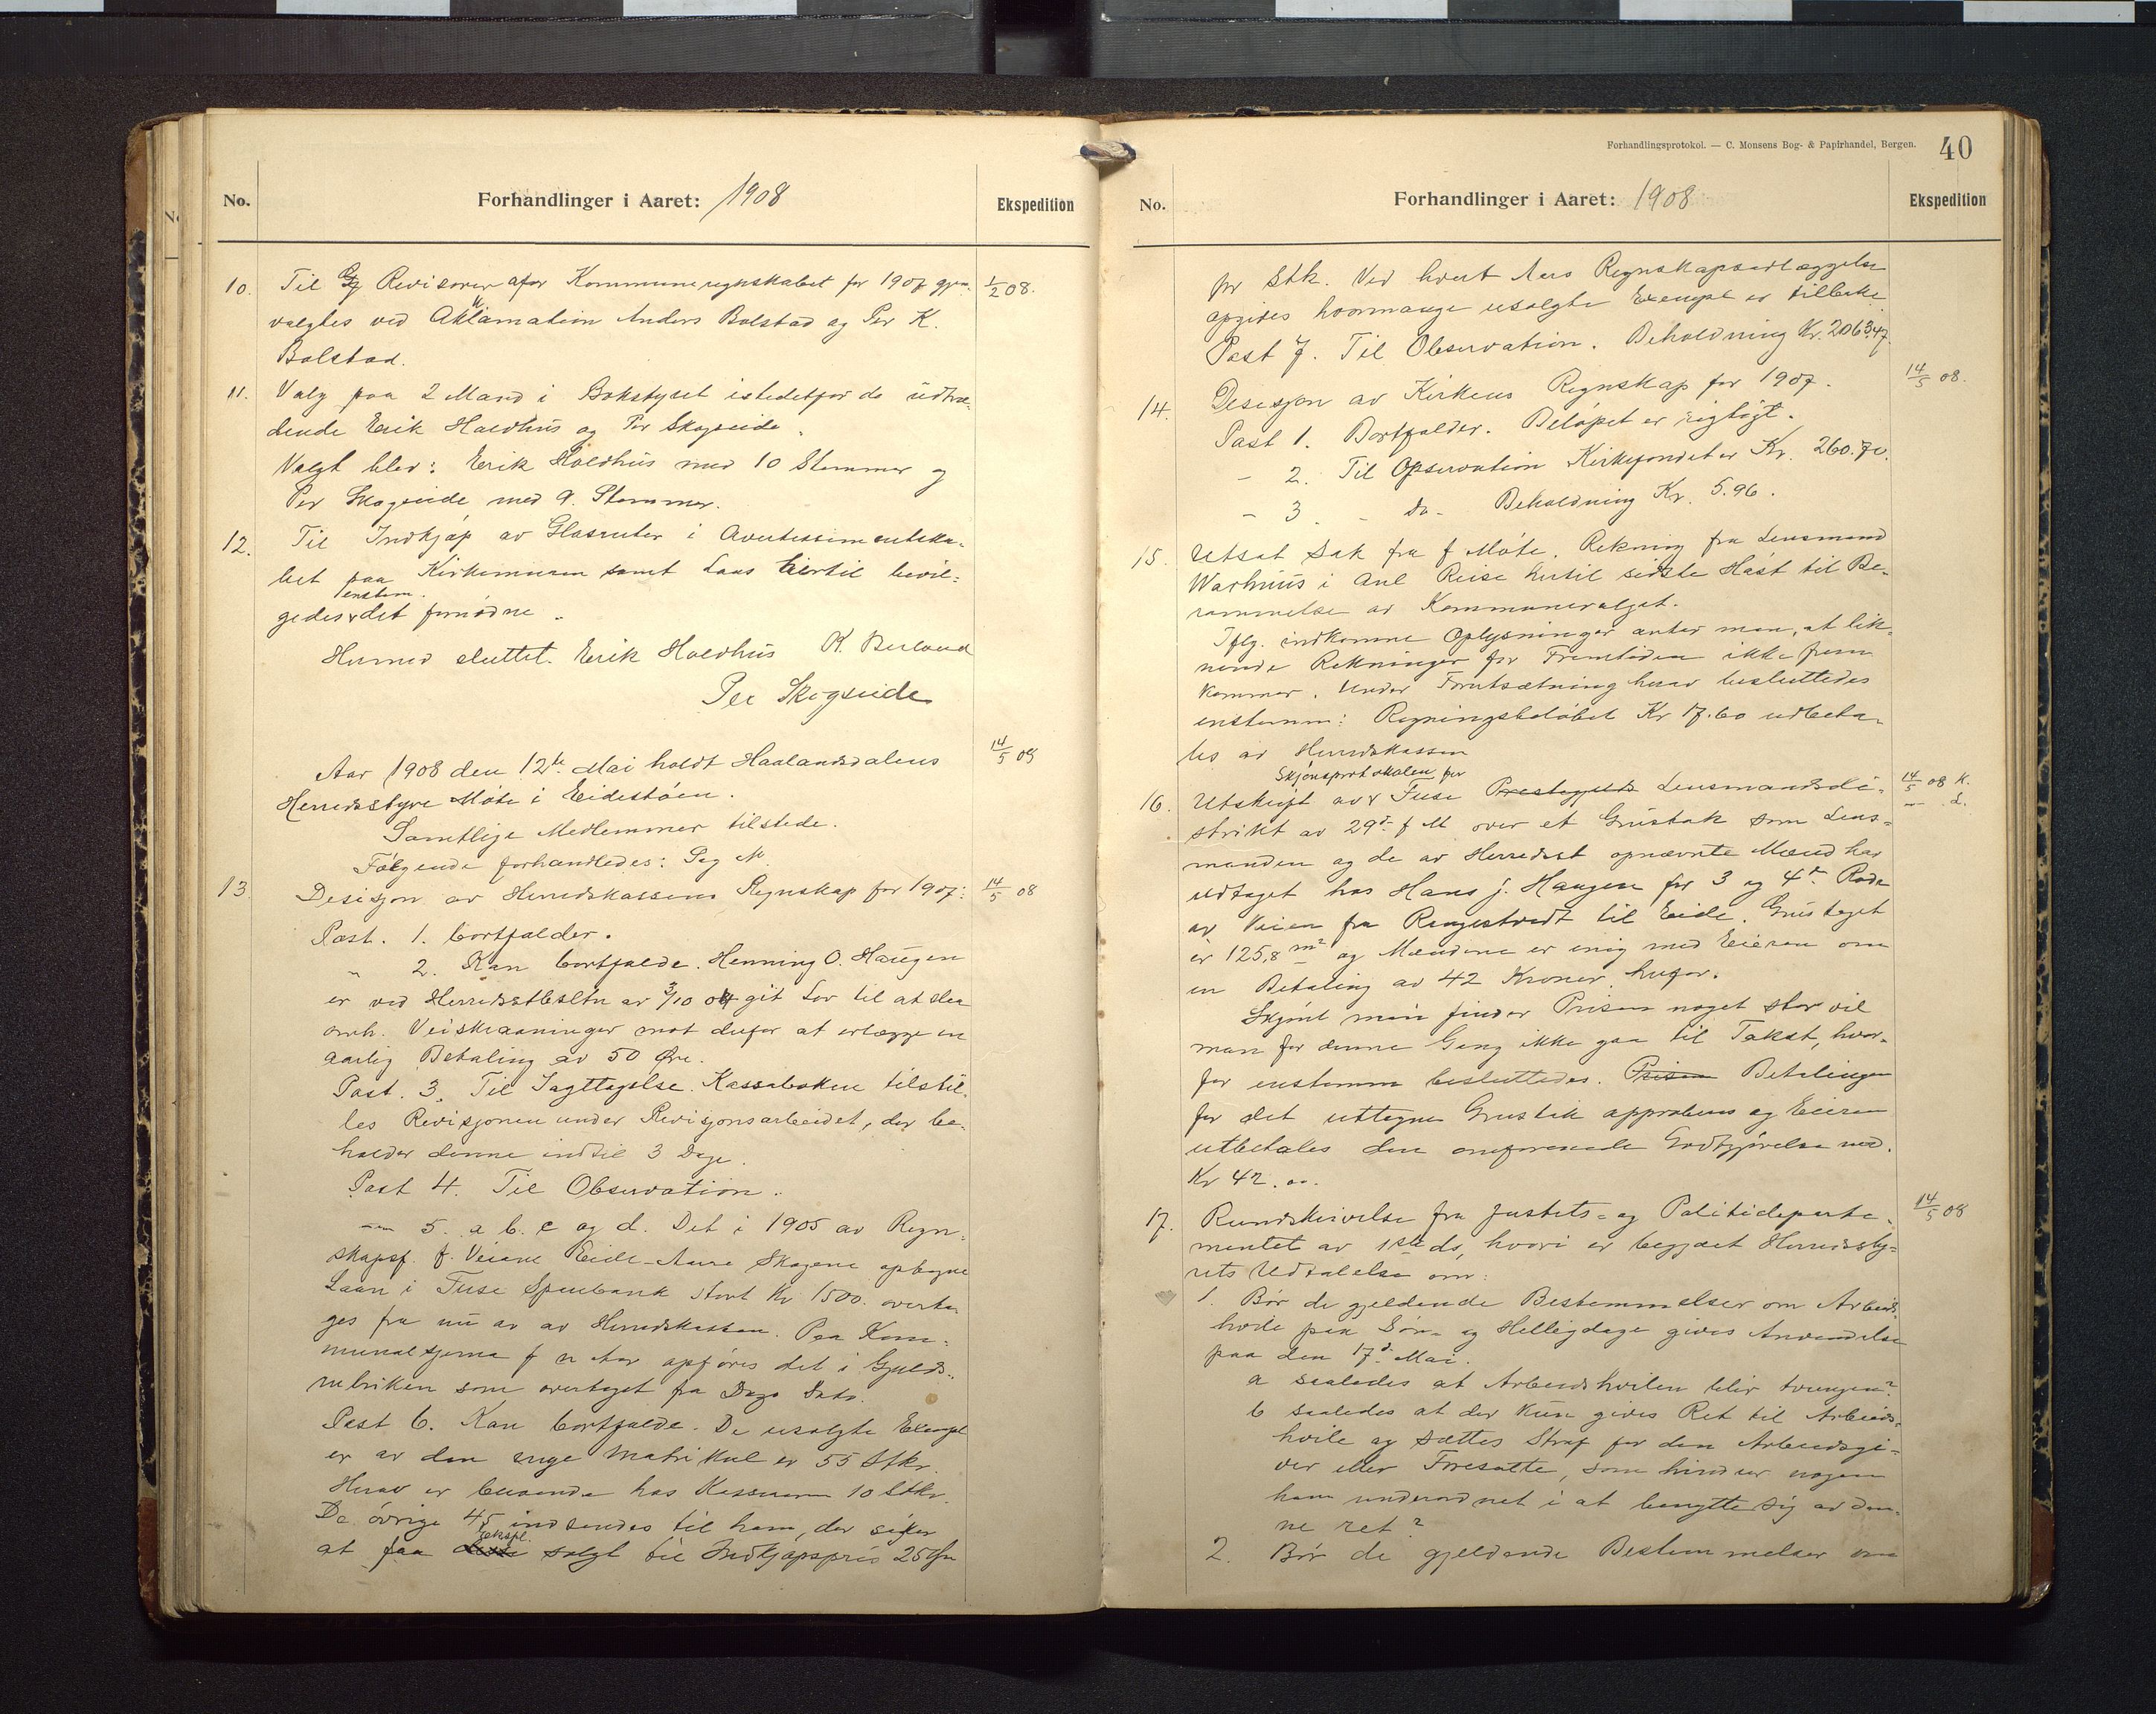 No.
Forhandlinger i Aaret: 1908
Ekspedition
10. Til Revisorer afor Kommuneregnskabet for 1907 gjen- 1/2 08.
valgtes ved Aklamation Anders Bolstad og Per K.
Bolstad.
11. Valg paa 2 Mand i Bokstyret istedetfor de udtræ-
dende Erik Holdhus og Per Skogseide.
Valgt blev: Erik Holdhus med 10 Stemmer og
Per Skogseide med 9. Stemmer.
12. Til Indkjøp av Glasruter i Avertissementska-
bet paa Kirkemuren samt Laas hertil bevil-
enstem.
gedes det fornødne.
Hermed sluttet. Erik Holdhus K. Berland
Per Skogseide
Aar 1908 den 12te Mai holdt Haalandsdalens 14/5 08
Herredsstyre Møte i Eidestøen.
Samtlige Medlemmer tilstede.
Følgende forhandledes: Sag No
13. Desisjon av Herredskassens Regnskap for 1907: 14/5 08
Post. 1. bortfalder.
" 2. Kan bortfalde. Henning O. Haugen
er ved Herredsstbesltn av 3/10 04 git Lov til at slaa
omh. Veiskraaninger mot derfor at erlægge en
aarlig Betaling av 50 Øre.
Post. 3. Til Iagttagelse. Kassaboken tilstil-
les Revisjonen under Revisjonsarbeidet, der be-
holder denne indtil 3 Dage.
Post 4. Til Observation.
" 5. a b. c og d. Det i 1905 av Regn-
skapsf. f. Veiene Eide-Aure Skogene optagne
Laan i Fuse Sparebank stort Kr 1500. overta-
ges fra nu av av Herredskassen. Paa Kom-
munalskjema f n Aar opføres det i Gjelds-
rubriken som overtaget fra Dags Dato.
Post 6. Kan bortfalde. De usolgte Exempl
er av den nye Matrikul er 55 Stkr.
Herav er beroende hos Kassereren 10 Stkr.
De øvrige 45 indsendes til ham, der søker
Ekspl.
at faa disse solgt til Indkjøpspris 25 Øre
Forhandlingsprotokol. — C. Monsens Bog- & Papirhandel, Bergen. 40
No.
Forhandlinger i Aaret: 1908
Ekspedition
pr Stk. Ved hvert Aars Regnskapsavlæggelse
opgives hvormange usolgte Exempl er tilbake
Post 7. Til Observation. Beholdning Kr. 2063,47.
14. Desisjon av Kirkens Regnskap for 1907. 14/5 08.
Post 1. Bortfalder. Beløpet er rigtigt.
- 2. Til Opservation Kirkefondet er Kr. 260.70.
- 3. - Do - Beholdning Kr. 5.96.
15. Utsat Sak fra f Møte. Rekning fra Lensmand
Warhuus i anl Reise hertil sidste Høst til Be-
rammelse av Kommunevalget.
Iflg. indkomne Oplysninger antar man, at lik-
nende Rekninger for Fremtiden ikke frem
kommer. Under Forutsætning herav besluttedes
enstemm: Regningsbeløbet Kr 17.60 udbeta-
les av Herredskassen
Skjønsprotokolen for
16. Utskrift av Fuse Prestegjelds Lensmandsdi- 14/5 08 K.
strikt av 29de f M over et Grustak som Lens- " L.
manden og de av Herredsst opnævnte Mænd har
udtaget hos Hans J. Haugen for 3 og 4de Rode
av Veien fra Rengestvedt til Eide. Grustaget
er 125,8 m2 og Mændene er enig med Eieren om
en Betaling av 42 Kroner herfor.
Skjønt man finder Prisen noget stor vil
man for denne Gang ikke gaa til Takst, hvor-
for enstemm besluttedes. Prisen Betalingen
for det uttagne Grustak approberes og Eieren
utbetales den omforenede Godtgjørelse med.
Kr 42.00.
17. Rundskrivelse fra Justits- og Politideparte- 14/5 08
mentet av 1ste ds, hvori er begjært Herredssty-
rets Udtalelse om:
1. Bør de gjeldende Bestemmelser om Arbeids
hvile paa Søn- og Helligdage gives Anvendelse
paa den 17de Mai.
a saaledes at Arbeidshvilen blir tvungen?
b saaledes at der kun gives Ret til Arbeids-
hvile og sættes Straf for den Arbeidsgi-
ver eller Foresatte, som hindrer nogen
ham underordnet i at benytte sig av den-
ne ret?
2. Bør de gjeldende Bestemmelser om